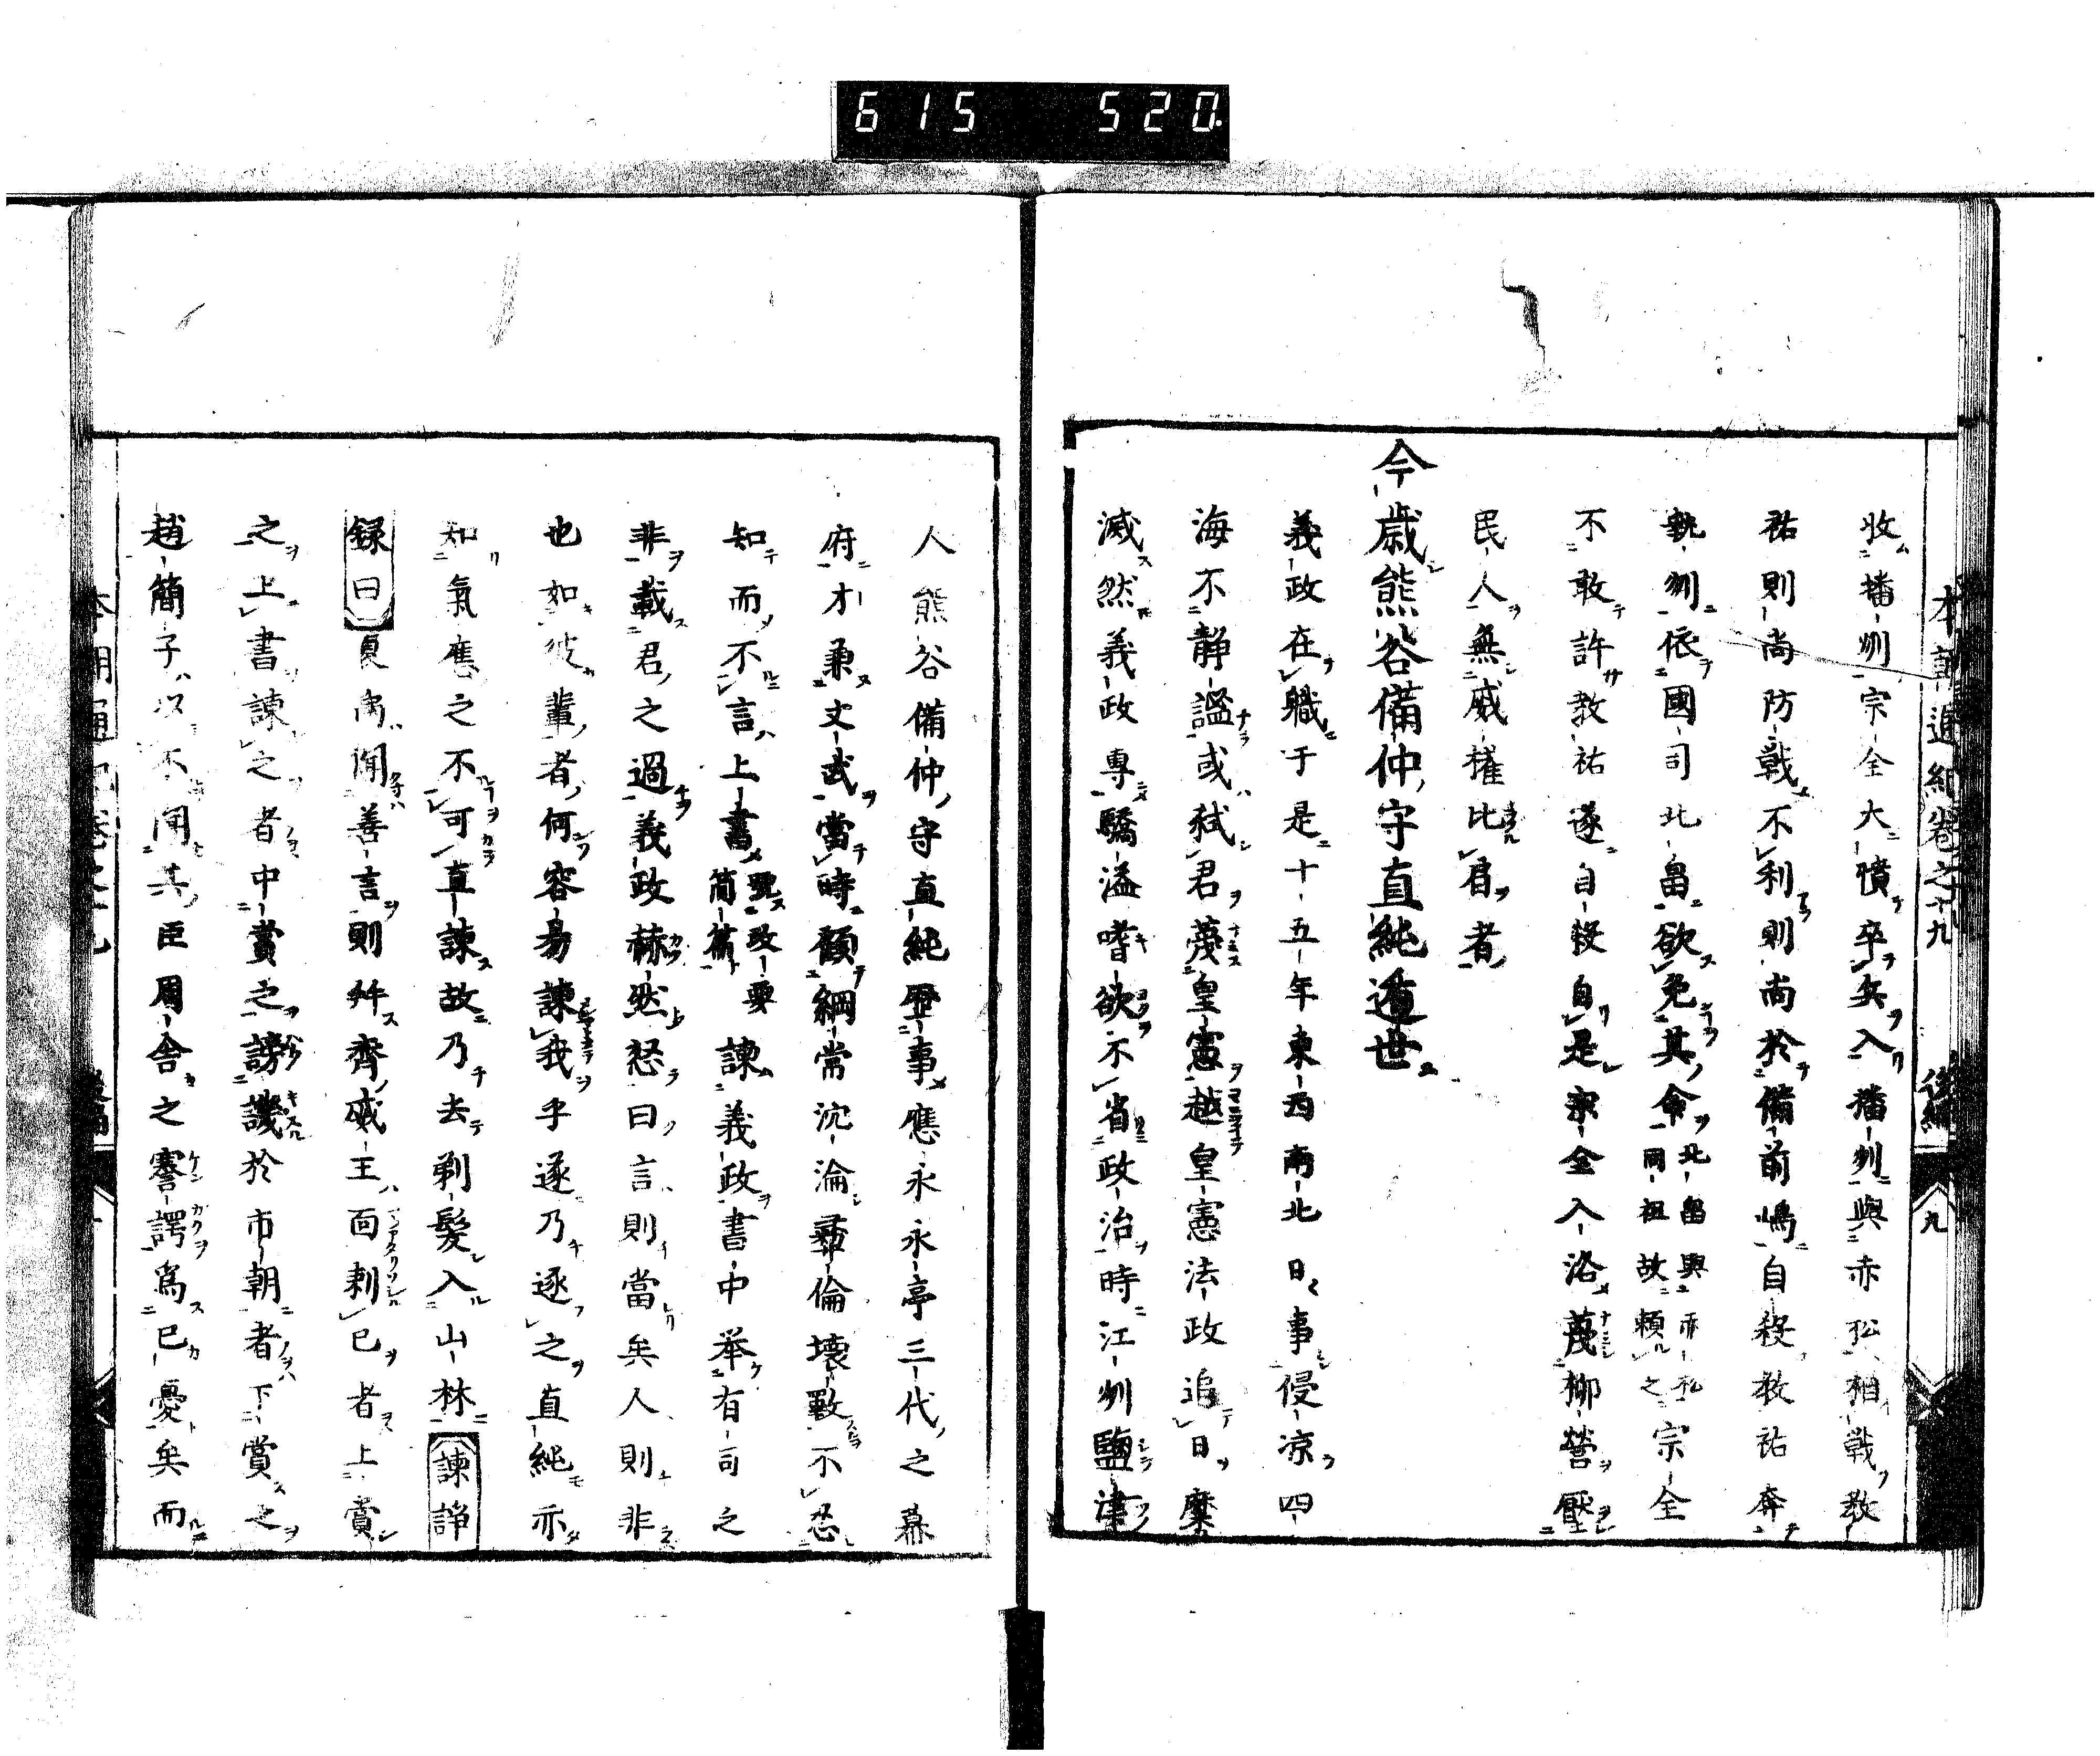 615 520
本朝通紀卷之十九 後編 九
收播州宗全大憤卒兵入播州與赤松相戰教
祐則尚防戰不利則尚於備前嶋自殺教祐奔
勢州依國司北畠欲免其命北畠與赤松同祖故頼之宗全
不敢許教祐遂自殺自是宗全入洛蔑柳營壓
民人無威權比肩者
今歳熊谷備仲守直純遁世
義政在職于是十五年東西南北日〻事侵凉四
海不静謐或弑君蔑皇憲越皇憲法政追日糜
滅然義政專驕溢嗜欲不省政治時江州鹽津
人熊谷備仲守直純歷事應永永亭三代之幕
府才兼文武當時顧綱常沈淪彛倫壞斁不忍
知而不言上書號政要簡篇諫義政書中举有司之
非載君之過義政赫然怒曰言則當矣人則非
也如彼輩者何容易諫我乎遂乃逐之直純亦
知氣應之不可直諫故乃去剃髮入山林諫諍
録曰夏禹聞善言則拜齊威王面刺已者上賞
之上書諫之者中賞之謗譏於市朝者下賞之
趙簡子以不聞其臣周舎之謇諤爲已憂矣而